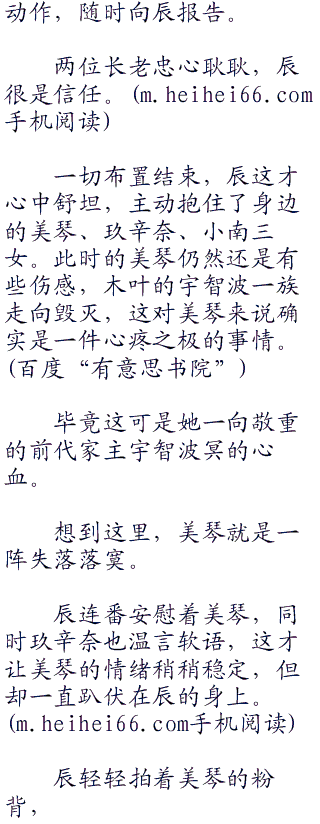 动作，随时向辰报告。
两位长老忠心耿耿，辰
很是信任。(m.heihei66.com
手机阅读)
一切布置结束，辰这才
心中舒坦，主动抱住了身边
的美琴、玖辛奈、小南三
女。此时的美琴仍然还是有
些伤感，木叶的宇智波一族
走向毁灭，这对美琴来说确
实是一件心疼之极的事情。
(百度“有意思书院”)
毕竟这可是她一向敬重
的前代家主宇智波冥的心
血。
想到这里，美琴就是一
阵失落落寞。
辰连番安慰着美琴，同
时玖辛奈也温言软语，这才
让美琴的情绪稍稍稳定，但
却一直趴伏在辰的身上。
(m.heihei66.com手机阅读)
辰轻轻拍着美琴的粉
背，